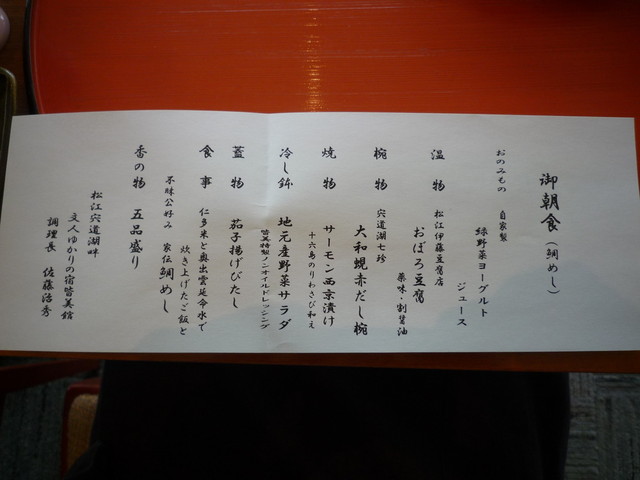 御朝食（鯛めし）
おのみもの 自家製
緑野菜ヨーグルト
ジュース
温物 松江伊藤豆腐店
おぼろ豆腐
薬味・割醤油
椀物 宍道湖七珍
大和蜆赤だし椀
焼物 サーモン西京漬け
十六島のりわさび和え
冷し鉢 地元産野菜サラダ
皆美特製ノンオイルドレッシング
蓋物 茄子揚げびたし
食事 仁多米と奥出雲延命水で
炊き上げたご飯と
不昧公好み 家伝鯛めし
香の物 五品盛り
松江宍道湖畔
文人ゆかりの宿皆美館
調理長 佐藤浩秀